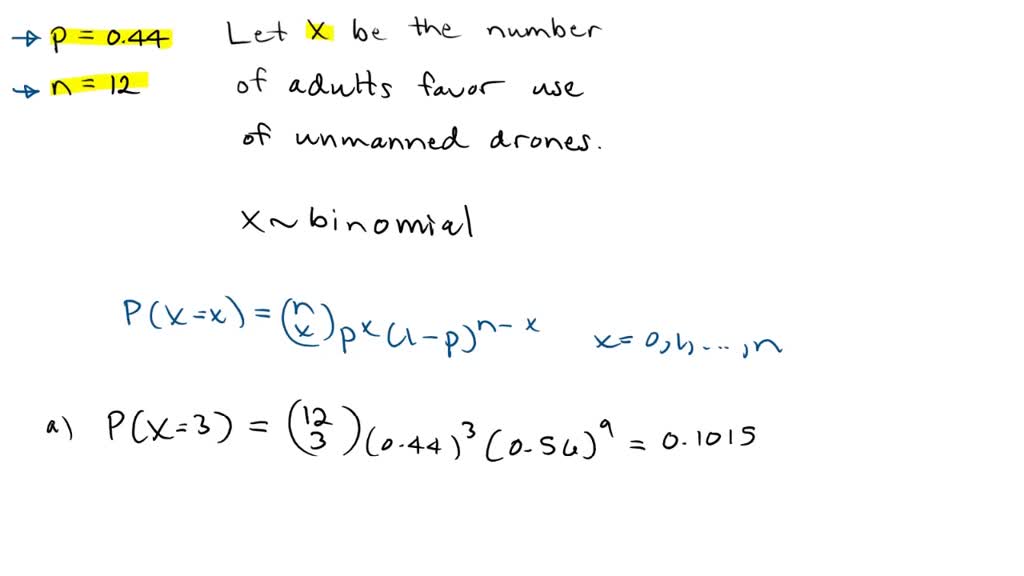 → p = 0.44 Let X be the number
→ n = 12 of adults favor use
of unmanned drones.
X ~ binomial
P(X=x) = (n x) p^x (1-p)^{n-x} x = 0, 1, ..., n
a) P(X=3) = (12 3) (0.44)^3 (0.56)^9 = 0.1015